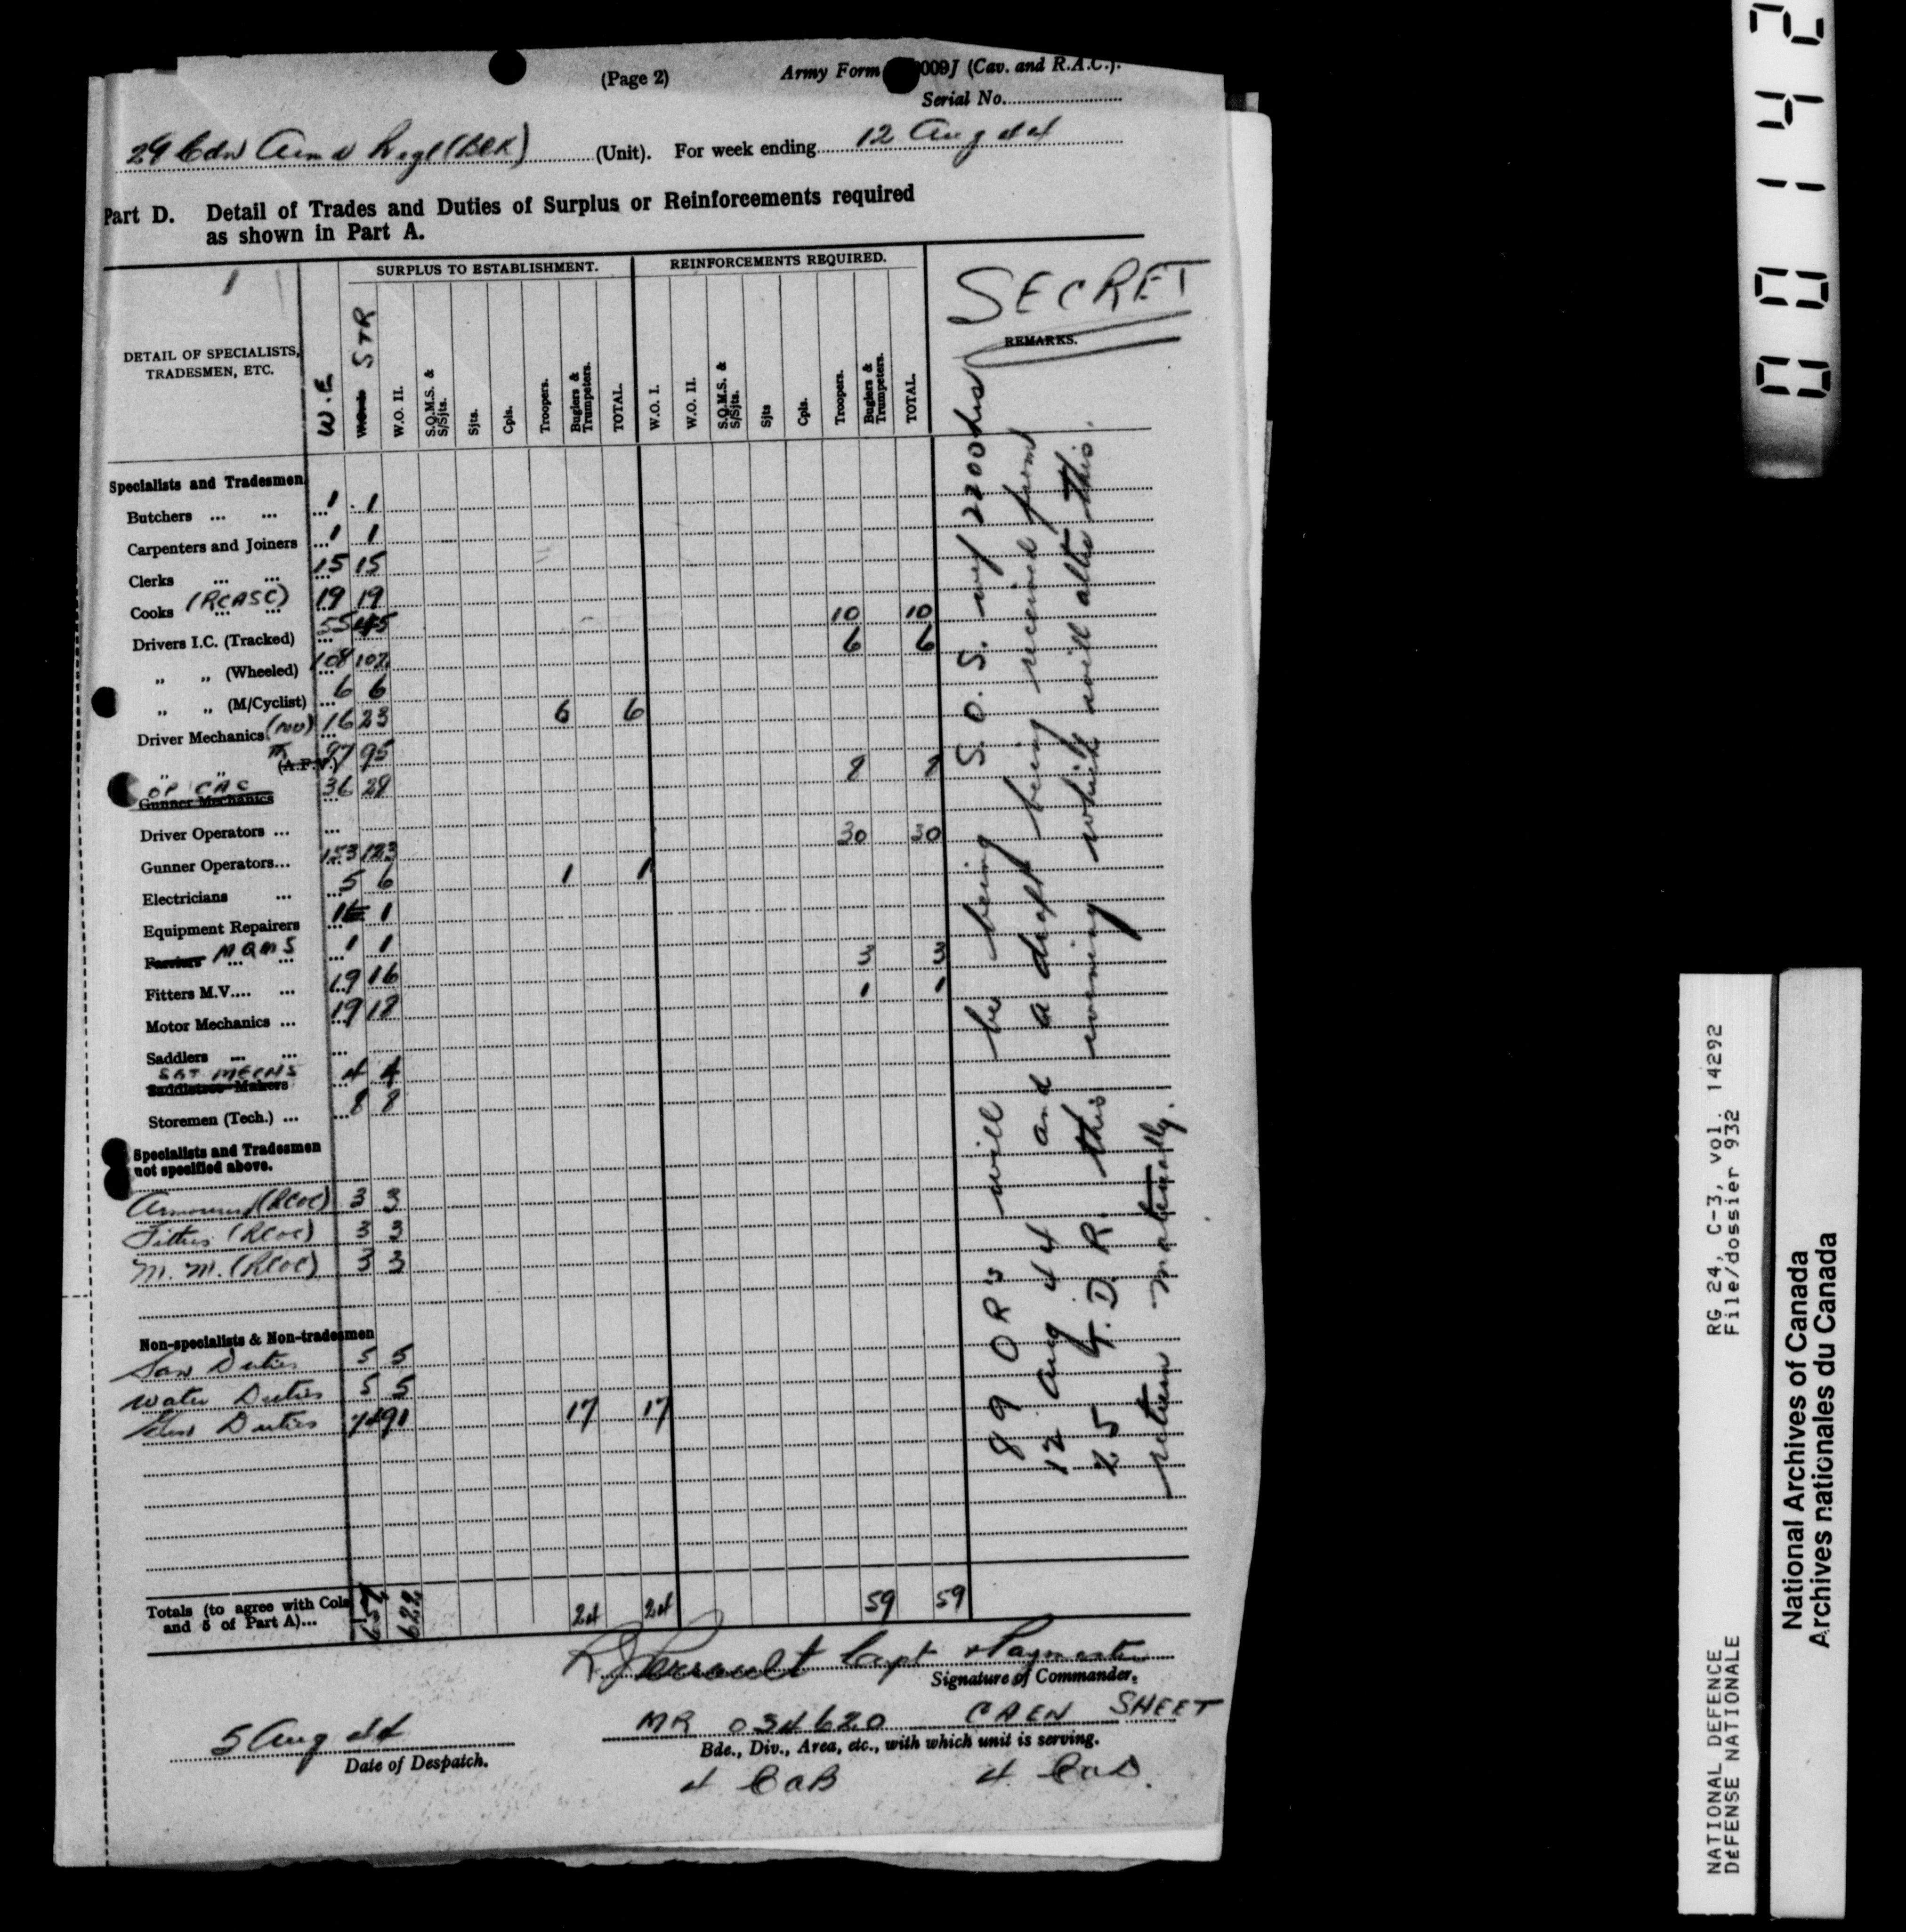 (Page 2) Army Form 009J (Cav. and R.A.C.).
Serial No.
29 Cdn Armd Regt (Unit). For week ending 12 Aug 44
Part D. Detail of Trades and Duties of Surplus or Reinforcements required
as shown in Part A.
SURPLUS TO ESTABLISHMENT. REINFORCEMENTS REQUIRED.
SECRET
REMARKS.
DETAIL OF SPECIALISTS,
TRADESMEN, ETC.
W.E. STR W.O. II. S.Q.M.S. & S/Sjts. Sjts. Cpls. Troopers. Buglers & Trumpeters. TOTAL. W.O. I. W.O. II. S.Q.M.S. & S/Sjts. Sjts Cpls. Troopers. Buglers & Trumpeters. TOTAL.
Specialists and Tradesmen.
Butchers ... ... 1 1
Carpenters and Joiners ... 1 1
Clerks ... ... 15 15
Cooks (RCASC) ... 19 19
Drivers I.C. (Tracked) ... 55 45 10 10
„ „ (Wheeled) ... 108 102 6 6
„ „ (M/Cyclist) ... 6 6
Driver Mechanics ... 16 23 6 6
„ „ (A.F.V.) 97 95
OP CAC
Gunner Mechanics ... 36 28 8 8
Driver Operators ... ...
Gunner Operators... 153 123 30 30
Electricians ... ... 5 6 1 1
Equipment Repairers ... 1 1
Farriers MQMS ... ... 1 1
Fitters M.V.... ... 19 16 3 3
Motor Mechanics ... 19 18 1 1
Saddlers ... ... ...
Saddletree Makers ... 4 4
Storemen (Tech.) ... ... 8 8
Specialists and Tradesmen
not specified above.
(RCOC) 3 3
Fitters (RCOC) 3 3
M.M. (RCOC) 3 3
Non-specialists & Non-tradesmen
San Duties 5 5
Water Duties 5 5
Duties 74 91 17 17
89 ORs will be being S.O.S. 2200 hrs
12 Aug 44 and a draft being received from
25 this evening which will alter this
picture materially.
Totals (to agree with Cols
and 5 of Part A)... 657 622 24 24 59 59
Capt Paymaster
Signature of Commander.
5 Aug 44
Date of Despatch.
MR 034620 CAEN SHEET
Bde., Div., Area, etc., with which unit is serving.
4 CAB 4 CAD.
00142
RG 24, C-3, vol. 14292
File/dossier 932
NATIONAL DEFENCE
DÉFENSE NATIONALE
National Archives of Canada
Archives nationales du Canada